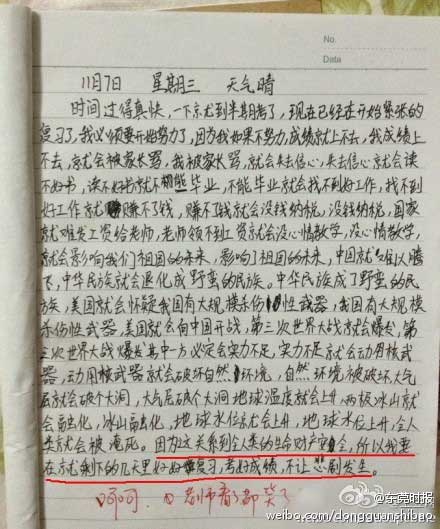 No.
Data
11月7日 星期三 天气晴
时间过得真快,一下就到半期考了,现在已经进开始紧张的
复习了,我必须要开始努力了,因为我如果不努力,成绩就上不去,我成绩上
不去,就会被家长骂,我被家长骂,就会失去信心,失去信心就会读
不好书,读不好书就不能毕业,不能毕业就会找不到好工作,找不到
好工作就赚不了钱,赚不了钱就会没钱纳税,没钱纳税,国家
就难发工资给老师,老师领不到工资就会没心情教学,没心情教学,
就会影响我们祖国的未来,影响了祖国的未来,中国就难以腾
飞,中华民族就会退化成野蛮的民族。中华民族成了野蛮的民
族,美国就会怀疑我国有大规模杀伤性武器,我国有大规
模杀伤性武器,美国就会向中国开战,第三次世界大战就会爆发,第
三次世界大战爆发其中一方必定会实力不足,实力不足就会动用核武
器,动用核武器就会破坏自然环境,自然环境被破坏,大气
层就会破个大洞,大气层破个大洞地球温度就会上升,两极冰山就
会融化,冰山融化,地球水位就会上升,地球水位上升,全人
类就会被淹死。因为这关系到全人类的生命财产安全,所以我要
在就剩下的几天里好好复习,考好成绩,不让悲剧发生。
呵呵 老师看了都笑了
@东莞时报
weibo.com/dongguanshibao